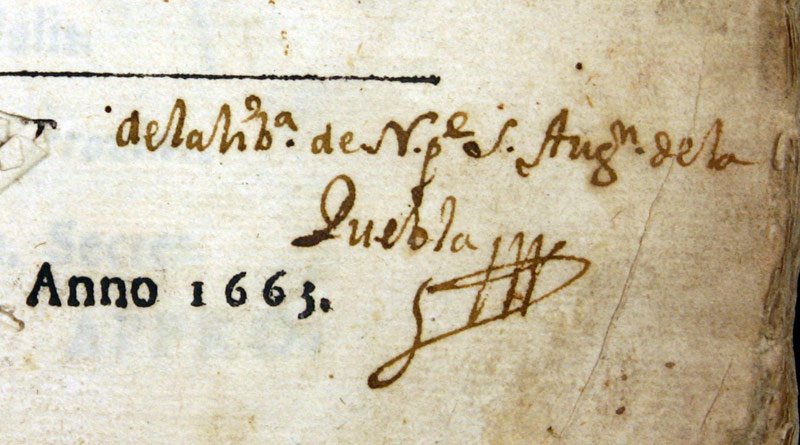 de la libª. de N. pᵉ S. Augⁿ. de la
Puebla
Anno 1663.